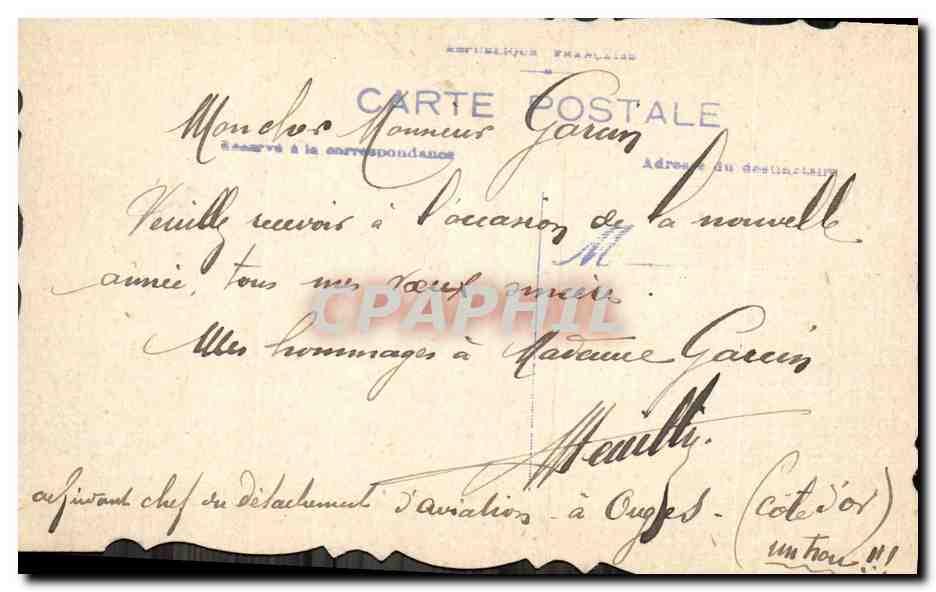 RÉPUBLIQUE FRANÇAISE
CARTE POSTALE
Mon cher Monsieur Garcin
Réservé à la correspondance
Adresse du destinataire
Veuillez recevoir à l'occasion de la nouvelle
M
année, tous mes vœux sincères.
CPAPHIL
Mes hommages à Madame Garcin
adjudant chef du détachement d'aviation - à Ouges - (Côte d'or)
un trou !!!